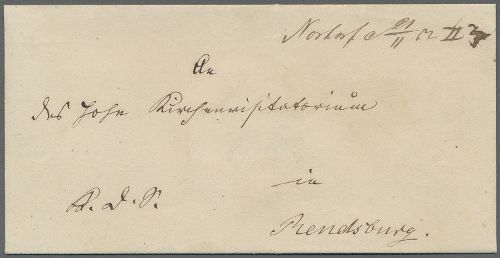 Nortorf d 21/11 52
An
das hohe Kirchenvisitatorium
K. D. S.
in
Rendsburg.